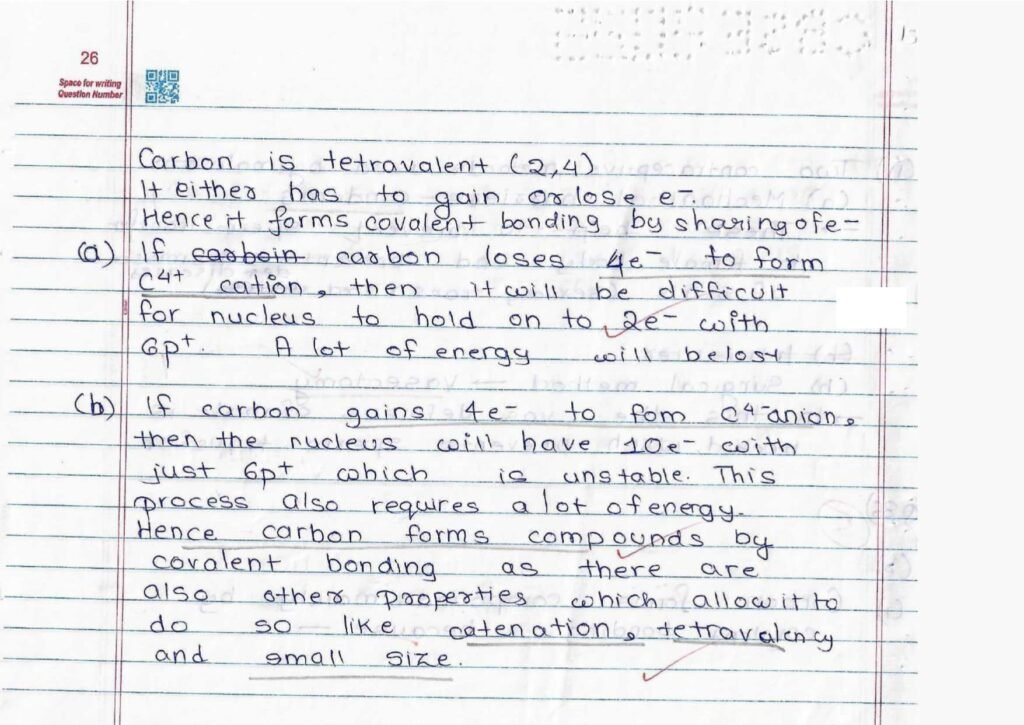 26
Space for writing
Question Number
Carbon is tetravalent (2,4)
It either has to gain or lose e⁻.
Hence it forms covalent bonding by sharing of e-
(a) If ~~carboin~~ carbon loses 4e⁻ to form
C⁴⁺ cation, then it will be difficult
for nucleus to hold on to 2e⁻ with
6p⁺. A lot of energy will be lost
(b) If carbon gains 4e⁻ to fom C⁴⁻ anion,
then the nucleus will have 10e⁻ with
just 6p⁺ which is unstable. This
process also requires a lot of energy.
Hence carbon forms compounds by
covalent bonding as there are
also other properties which allow it to
do so like catenation, tetravalency
and small size.